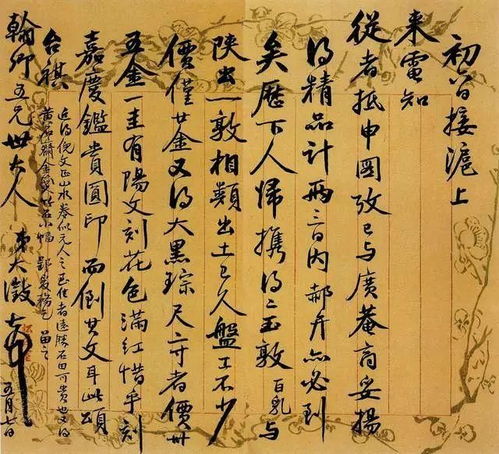 初接滬上
來電知
從者抵申圖攷已與廣菴商妥揚
得精品計兩三日內郝升亦必到
矣歷下人歸攜得二玉敦百乳與
陝出一敦相類出土已久盤工不少
價僅廿金又得大黑琮尺二寸者價卅
五金一圭有陽文刻花色滿紅惜乎刻
嘉慶鑑賞圓印而倒其文耳此頌
台祺
近得倪文正山水卷似元人之至佳者遠勝石田可貴也又得
黃石齋金小幅
翰卿五兄世大人 弟大澂頓首 五月七日